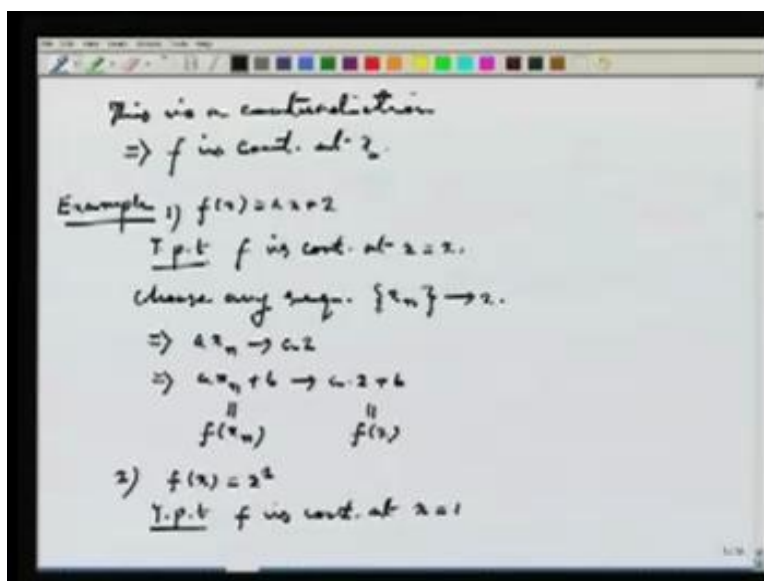 This is a contradiction
=> f is cont. at x₀.
Example 1) f(x) = ax+2
T.p.t f is cont. at x = 2.
Choose any seqn. {xₙ} → 2.
=> axₙ → a.2
=> axₙ + b → a.2 + b
|| ||
f(xₙ) f(2)
2) f(x) = x²
T.p.t f is cont. at x = 1